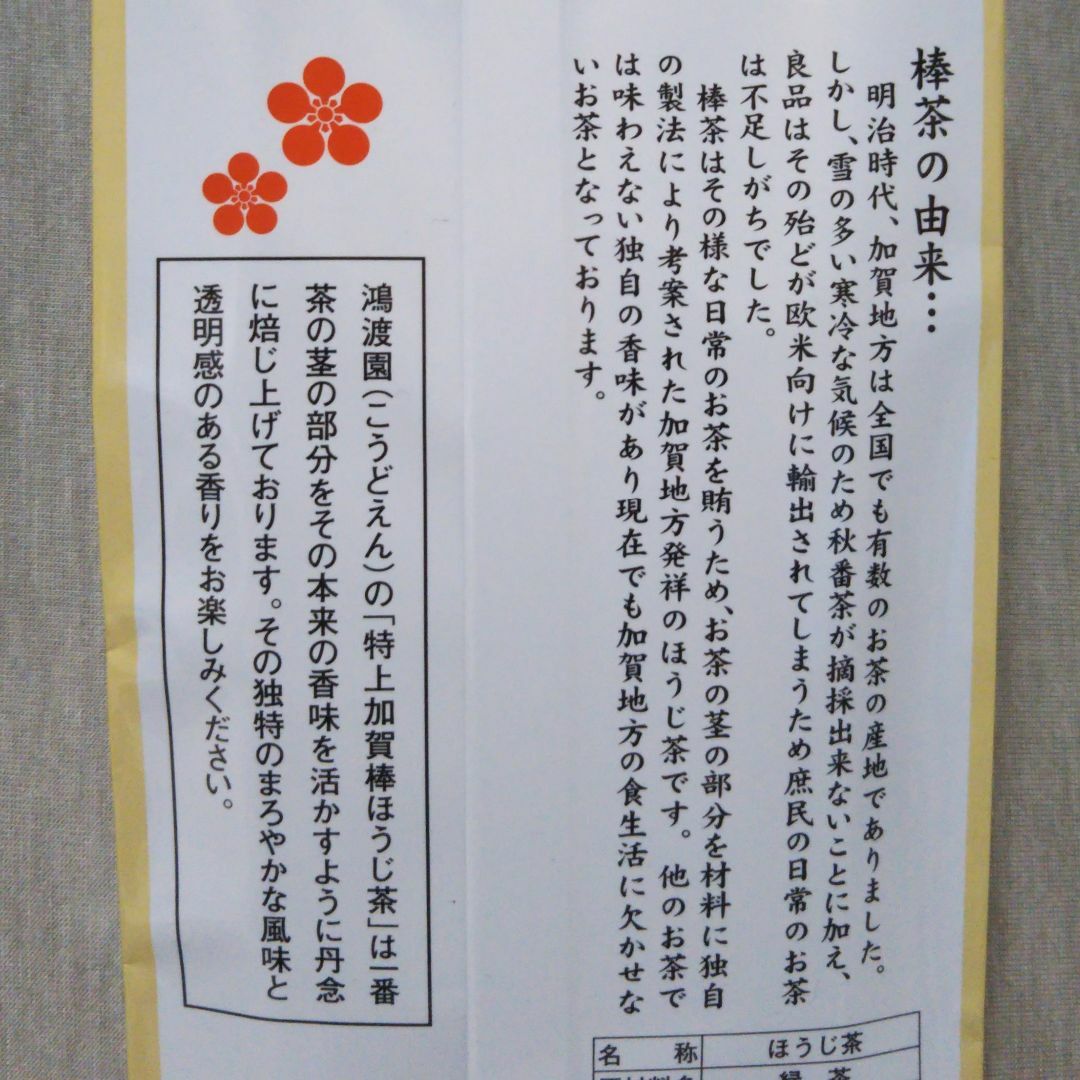 棒茶の由来…
明治時代、加賀地方は全国でも有数のお茶の産地でありました。
しかし、雪の多い寒冷な気候のため秋番茶が摘採出来ないことに加え、
良品はその殆どが欧米向けに輸出されてしまうため庶民の日常のお茶
は不足しがちでした。
棒茶はその様な日常のお茶を賄うため、お茶の茎の部分を材料に独自
の製法により考案された加賀地方発祥のほうじ茶です。他のお茶で
は味わえない独自の香味があり現在でも加賀地方の食生活に欠かせな
いお茶となっております。
鴻渡園(こうどえん)の「特上加賀棒ほうじ茶」は一番
茶の茎の部分をその本来の香味を活かすように丹念
に焙じ上げております。その独特のまろやかな風味と
透明感のある香りをお楽しみください。
名称 ほうじ茶
緑茶